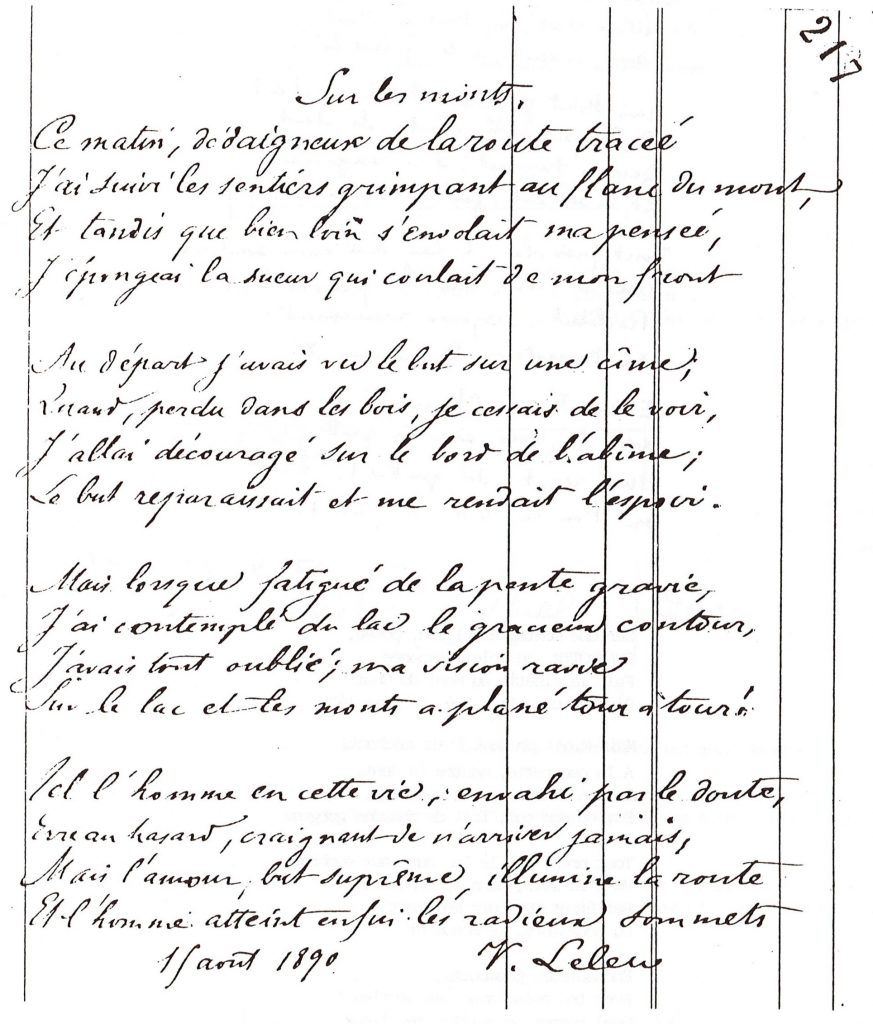 217
Sur les monts.
Ce matin, dédaigneux de la route tracée
J'ai suivi les sentiers grimpant au flanc du mont,
Et tandis que bien loin s'envolait ma pensée,
J'épongeai la sueur qui coulait de mon front
Au départ j'avais vu le but sur une cîme;
Quand, perdu dans les bois, je cessais de le voir,
J'allai découragé sur le bord de l'abîme;
Le but reparaissait et me rendait l'espoir.
Mais lorsque fatigué de la pente gravie,
J'ai contemplé du lac le gracieux contour,
J'avais tout oublié; ma vision ravie
Sur le lac et les monts a plané tour à tour.
Tel l'homme en cette vie, envahi par le doute,
Erre au hasard, craignant de n'arriver jamais,
Mais l'amour, but suprême, illumine la route
Et l'homme atteint enfin les radieux sommets
15 août 1890 V. Leleu